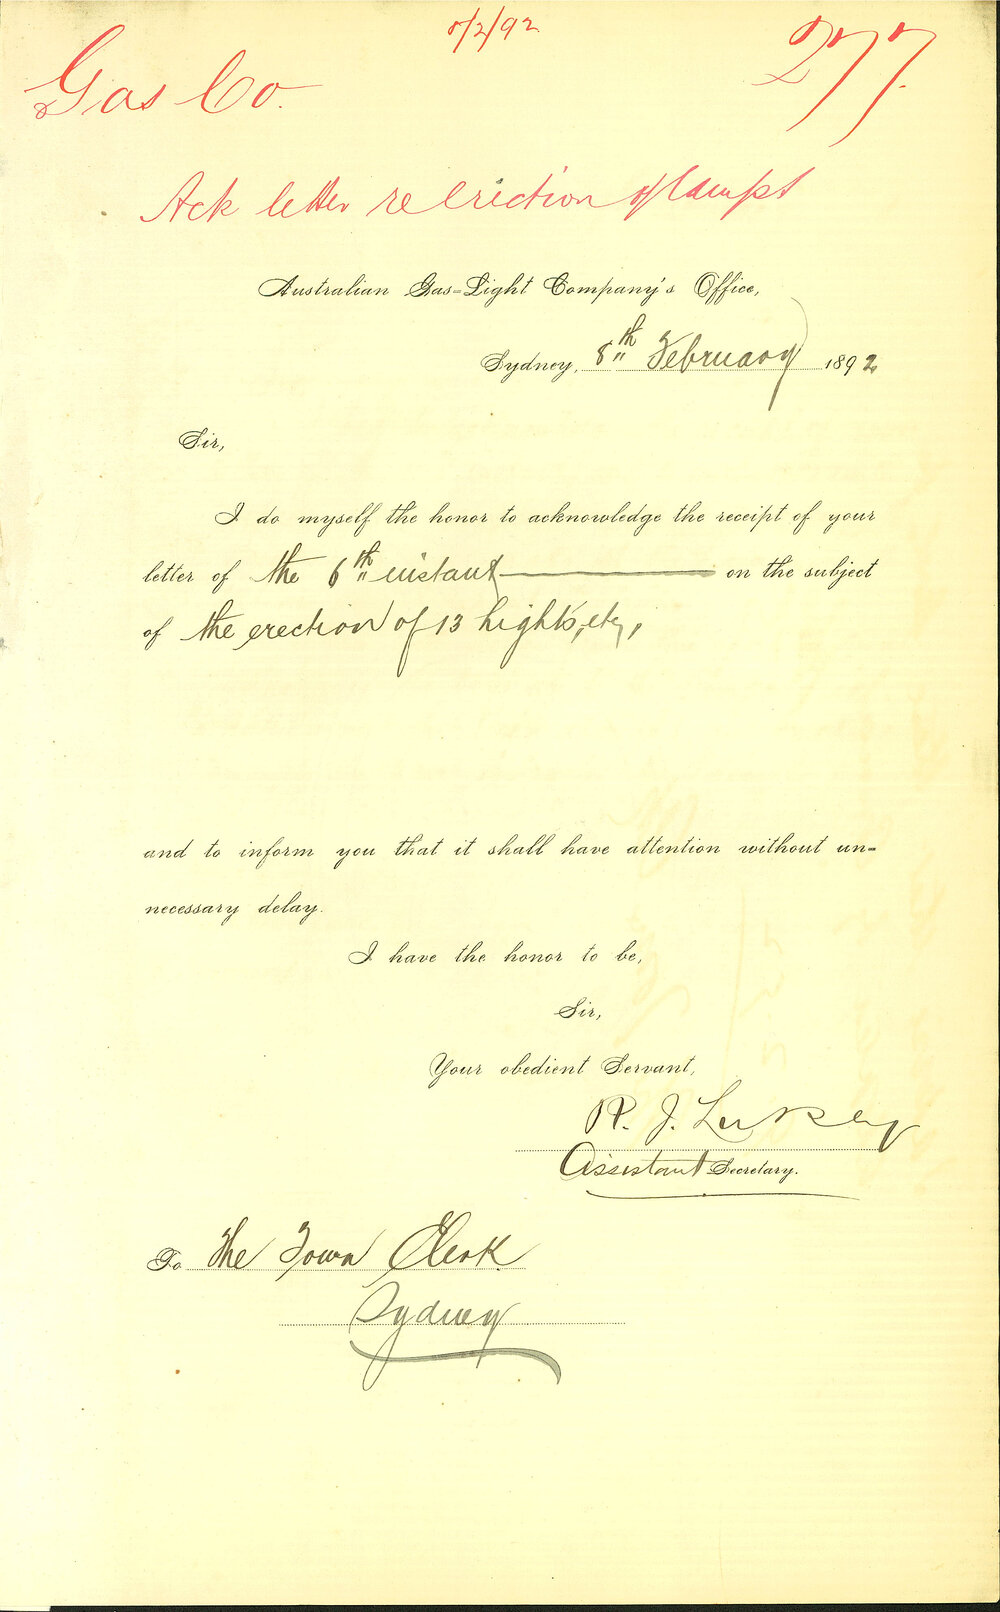 8/2/92
Gas Co. 277.
Ack letter re Erection of lamps
Australian Gas-Light Company's Office,
Sydney, 8th February 1892
Sir,
I do myself the honor to acknowledge the receipt of your
letter of the 6th instant on the subject
of the erection of 13 lights, etc,
and to inform you that it shall have attention without un-
necessary delay.
I have the honor to be,
Sir,
Your obedient Servant,
R. J. Lukey
Assistant Secretary.
To The Town Clerk
Sydney